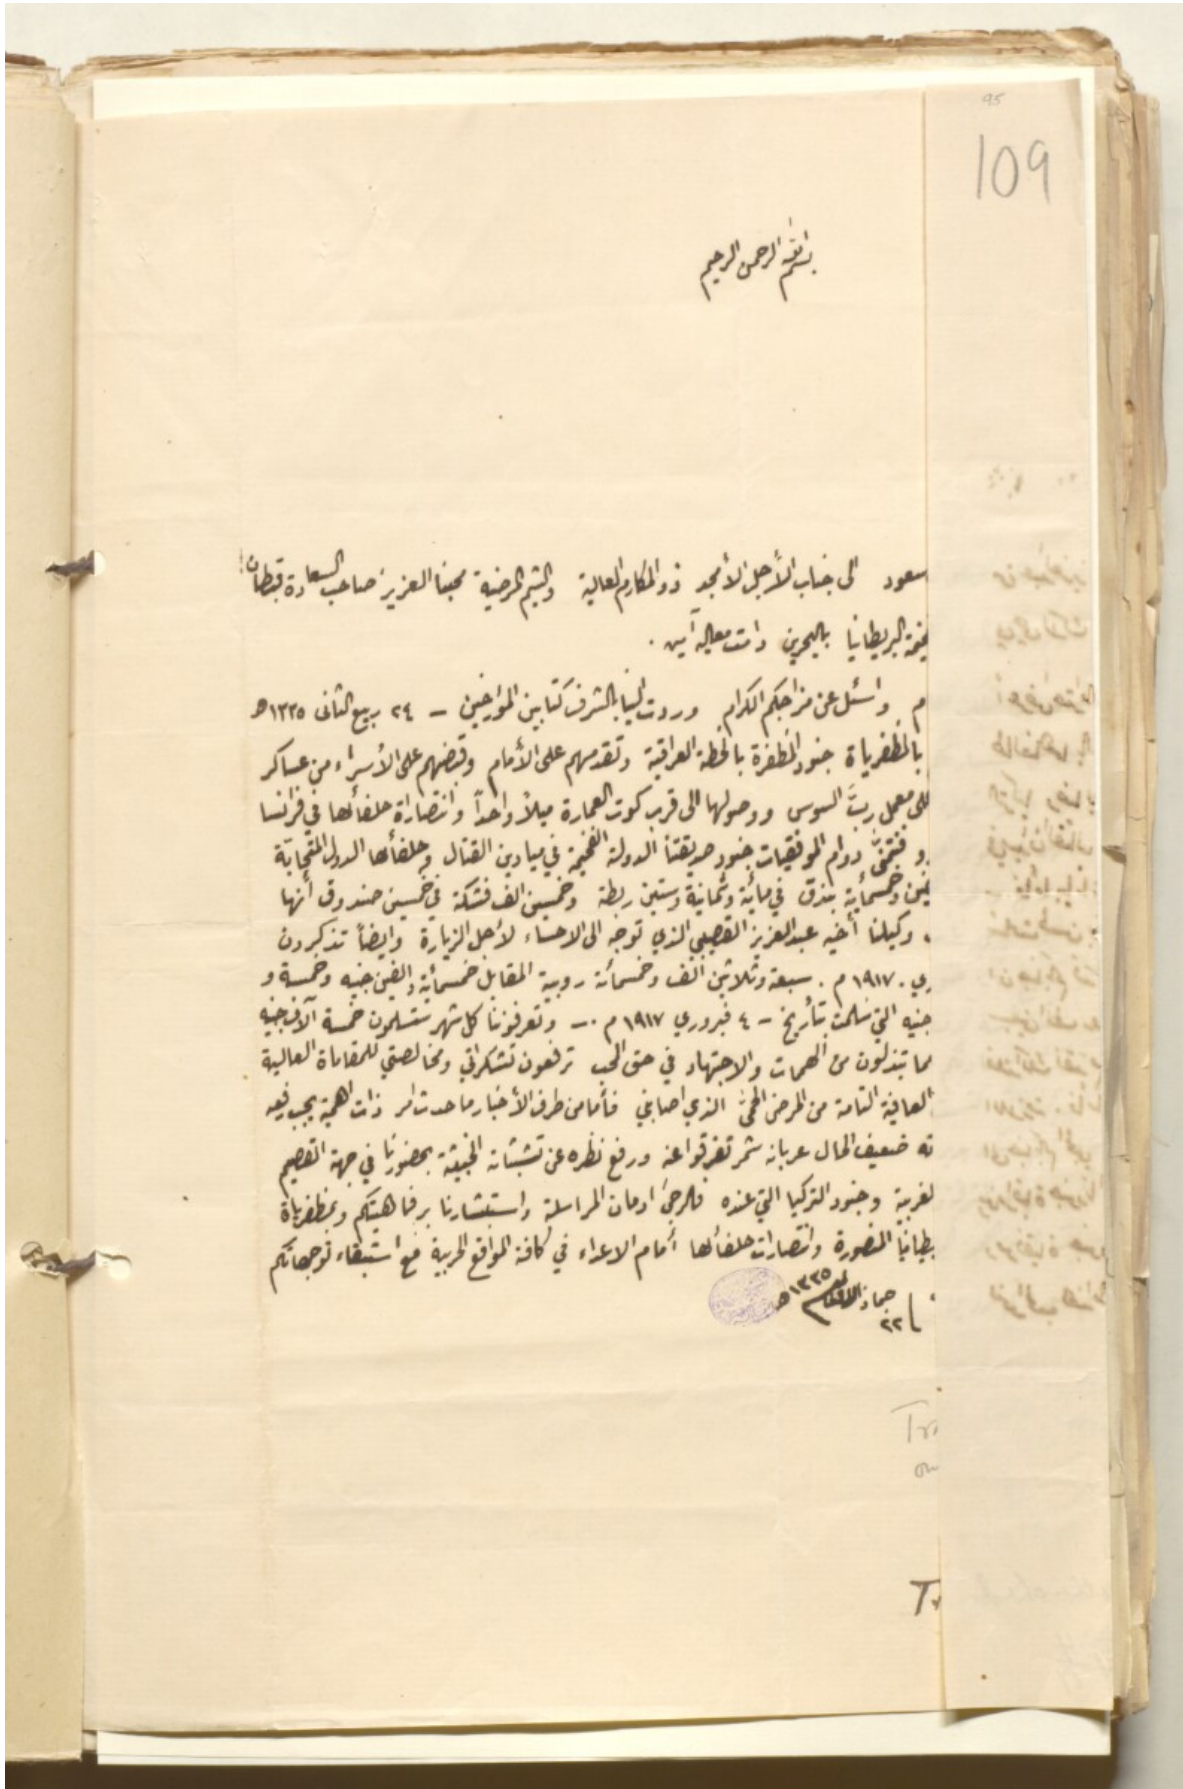 95
109
بسم الله الرحمن الرحيم
سعود الى جناب الأجل الأمجد ذو المكارم العالية والشيم المرضية محبنا العزيز صاحب السعادة قبطان
البريطانيا بالبحرين دامت معاليه آمين .
م واسئل عن مزاجكم الكرام وردت الينا بالشرف كتابين المؤرخين – ٢٤ ربيع الثانى ١٣٣٥ھ
بالمظفرياة جنود المظفرة بالخطة العراقية وتقدمهم على الأمام وقبضهم على الأسراء من عساكر
على معمل ربّ السوس ووصولها الى قرب كوت العمارة ميلاً واحداً وانتصاراة حلفائها في فرانسا
و فنتمنّى دوام الموفقيات جنود صديقتنا الدولة الفخيمة في ميادين القتال وحلفائها الدول المتحابّة
وخمسمأية بندق في مائة وثمانية وستين ربطة وخمسين الف فشكة في خمسين صندوق أنها
وكيلنا أخيه عبدالعزيز القصيبي الذي توجه الى الاحساء لأجل الزيارة وايضاً تذكرون
ري ١٩١٧ م . سبعة وثلاثين الف وخمسمائة روبية المقابل خمسمأية والفين جنيه وخمسة و
جنيه التي سلمت بتأريخ – ٤ فبروري ١٩١٧ م – وتعرفوننا كل شهر ستسلمون خمسة آلاف جنيه
مما تبذلون من الهمات والاجتهاد في حق المحب ترفعون تشكراتي ومخالصتي للمقاماة العالية
العافية التامة من المرض الحمّى الذي اصابني فأما من طرف الأخبار ما حدث امر ذات اهمية يجب فيه
ته ضعيف الحال عربانه شمر تفرقوا عنه ورفع نظره عن تشبثاته الخبيثة بحضورنا في جهة القصيم
لغربية وجنود التركيا التي عنده فالرجى ادمان المراسلة واستبشارنا برفاهيتكم وبمظفرياة
بريطانيا المنصورة وانتصارات حلفائها أمام الاعداء في كافة المواقع الحربية مع استبقاء توجهاتكم
٢٢ جماد ١٣٣٥ھ